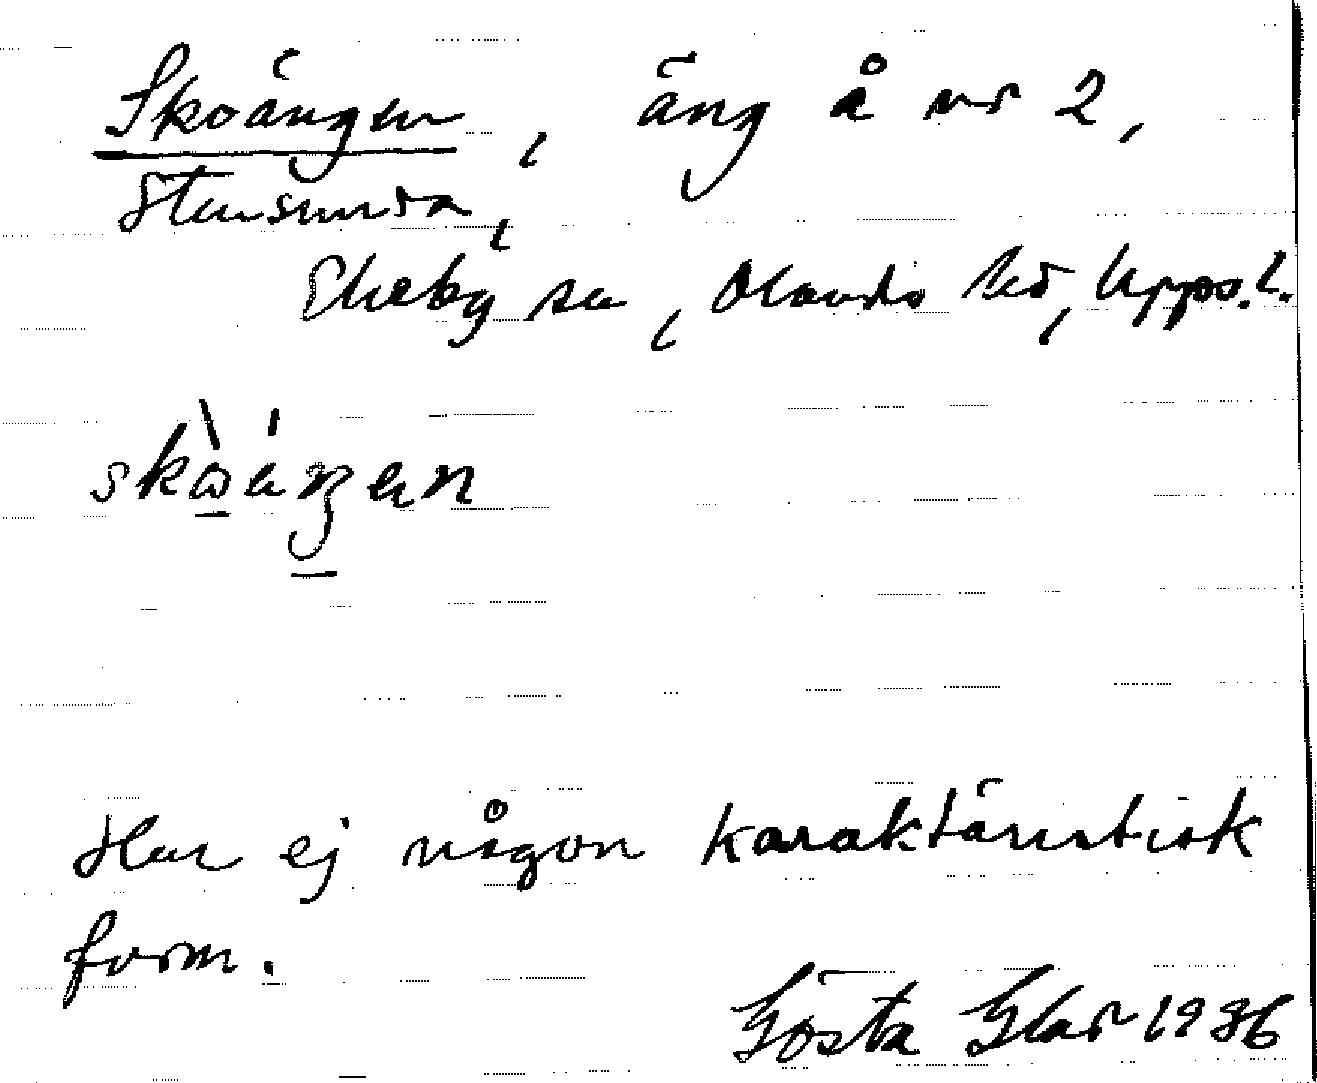 Skoängen, äng å nr 2,
Stensunda,
Skeby sn, Olands hd, Upps. l.
Har ej någon karaktäristisk
form.
Gösta 1936